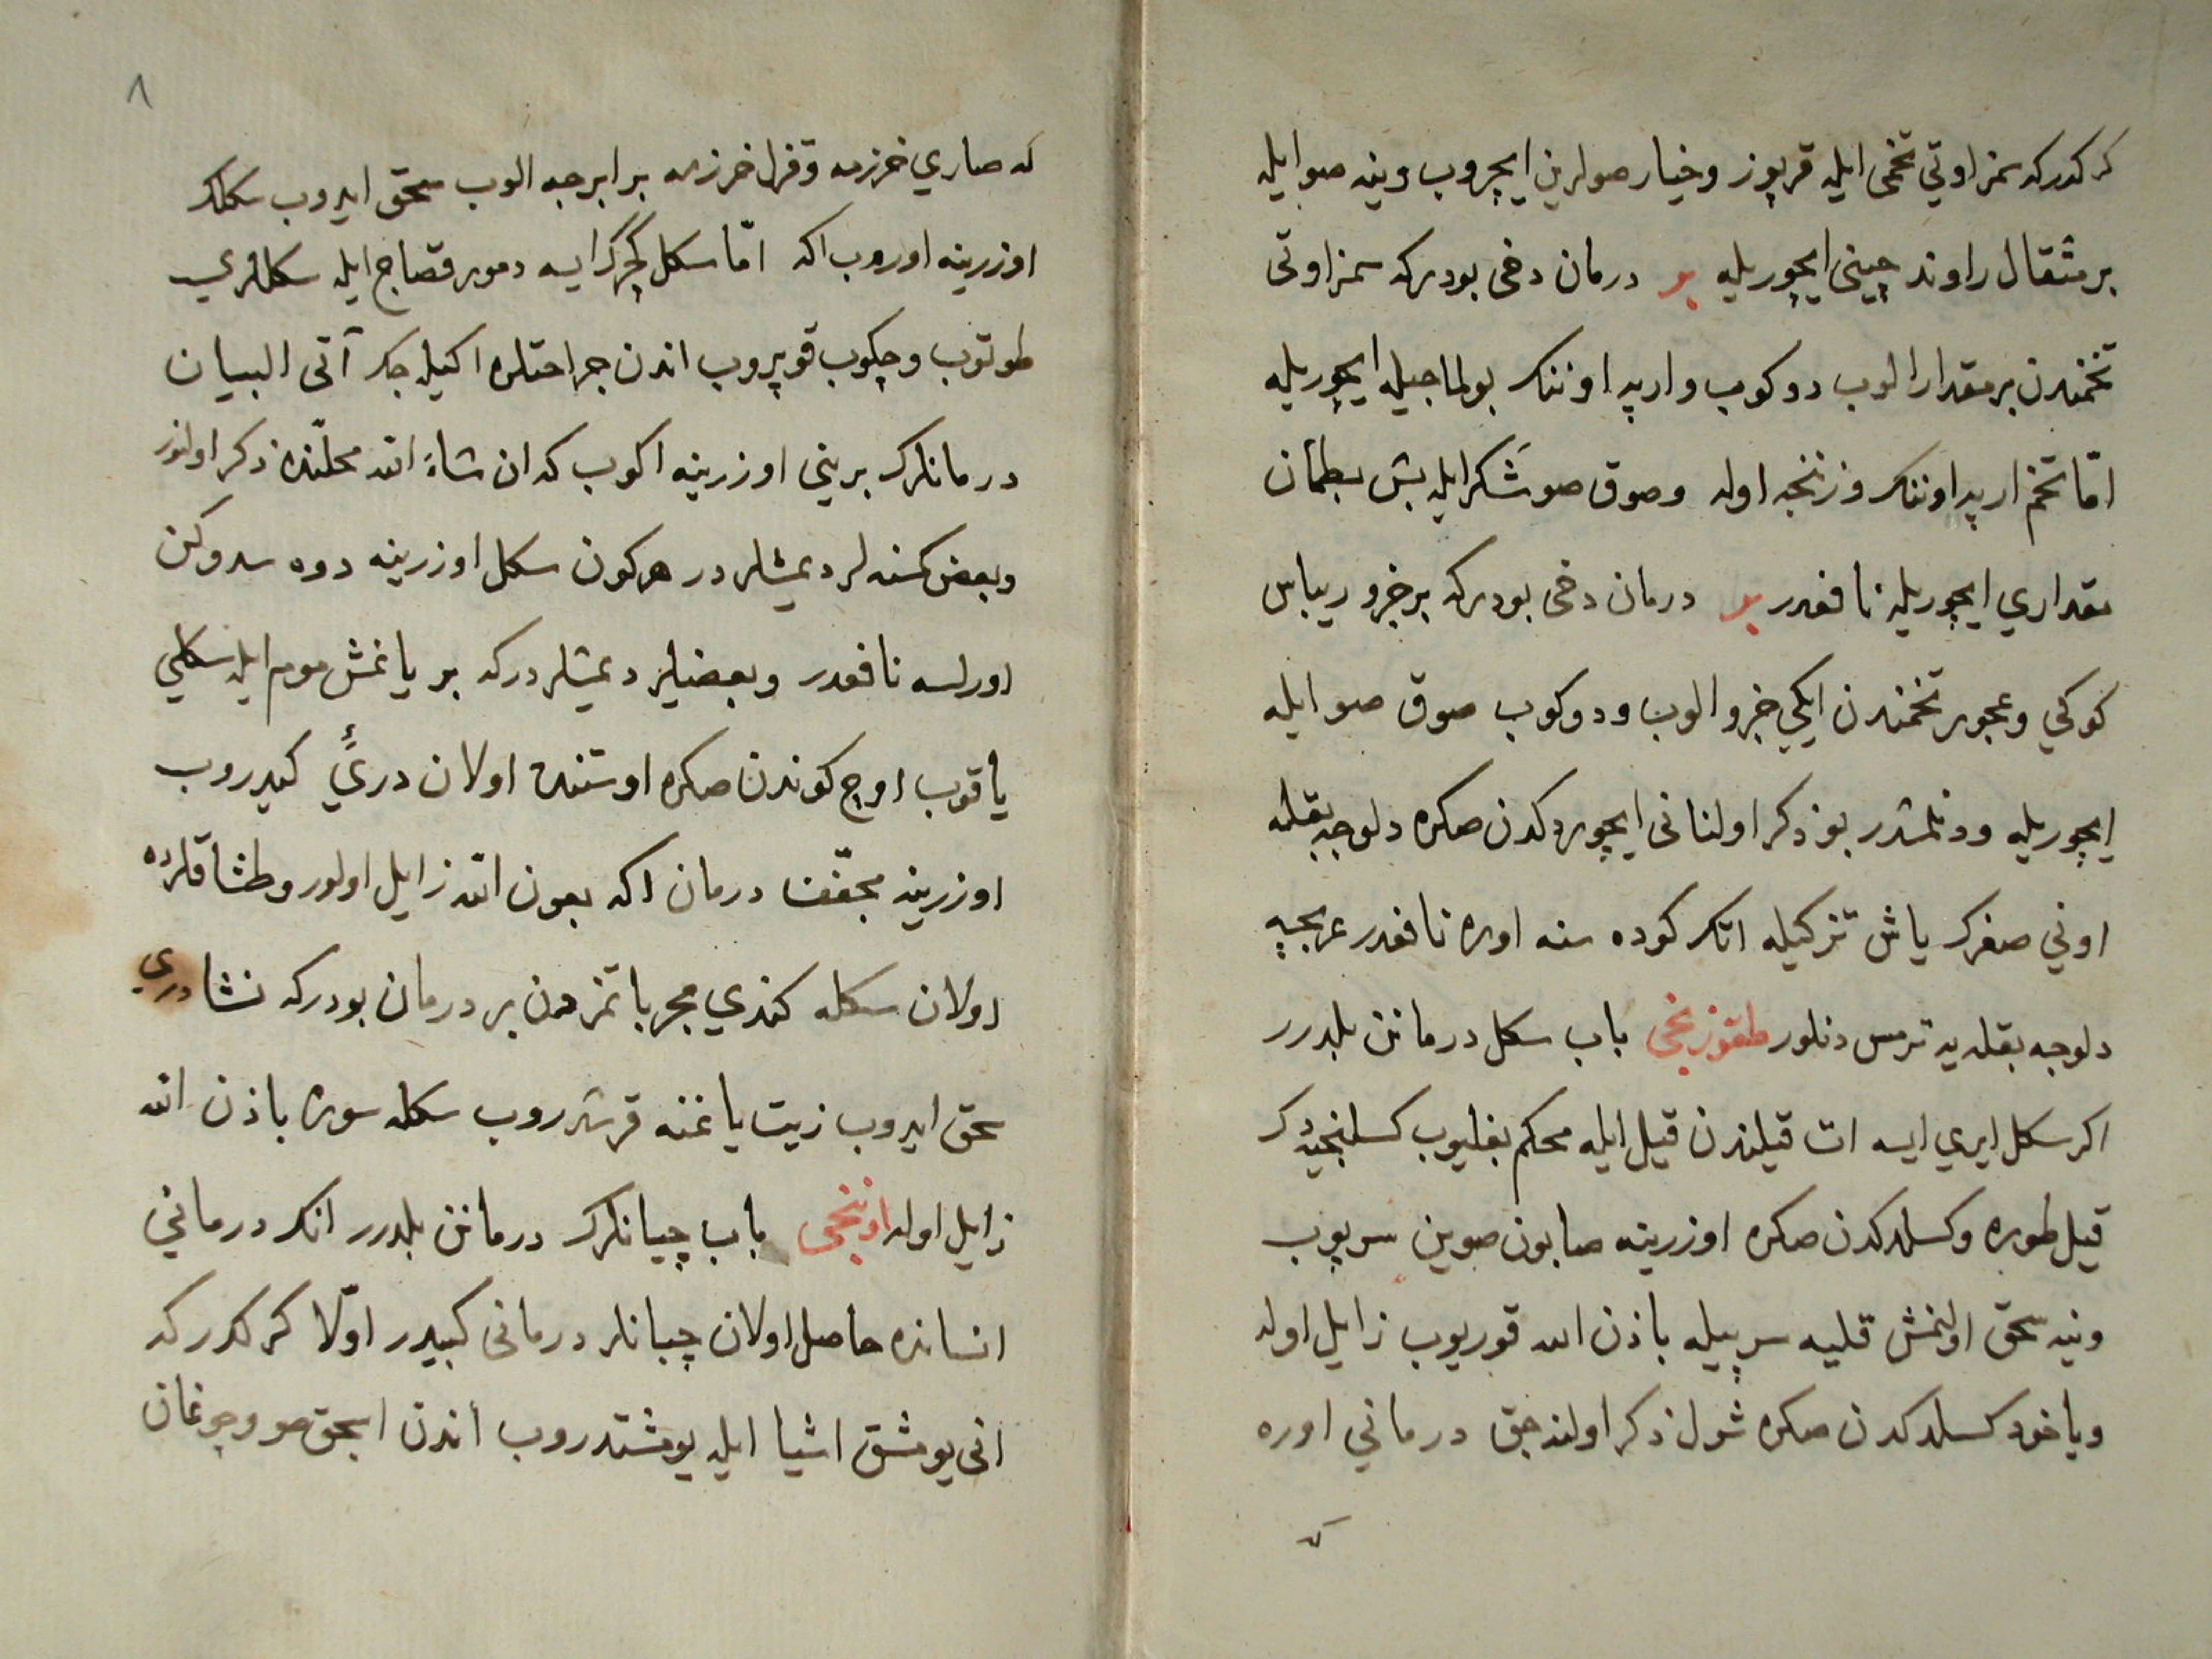 كركدركه سمزاوتي تخمى ايله قرپوز وخيار صولرين ايچروب وينه صو ايله
بر مثقال راوند چينى ايچوريله بر درمان دخى بودركه سمزاوتى
تخمندن بر مقدار الوب دوكوب وارپه اوننك بولماجيله ايچوريله
امّا تخم ارپه اوننك وزننجه اوله وصوق صو شَكر ايله بش بطمان
مقداري ايچوريله نافعدر بر درمان دخى بودركه بر جزو ريباس
كوكي وعجور تخمندن ايكي جزو الوب ودوكوب صوق صو ايله
ايچوريله ودنلمشدر بو ذكر اولنانى ايچوردكدن صكره دلوجه بقله
اوني صغرك ياش تزكيله اتك كوده سنه اوره نافعدر عربجه
دلوجه بقله يه ترمس دنلور طقوزنجى باب سكل درمانن بلدرر
اكر سكل ايري ايسه ات قيلندن قيل ايله محكم بغليوب كسلنجيه دك
قيل طوره وكسلدكدن صكره اوزرينه صابون صوين سرپوب
وينه سحق اولنمش قليه سرپيله باذن الله قوريوب زايل اوله
وياخود كسلدكدن صكره شول ذكر اولنه جق درماني اوره
كه
٨
كه صاري خرزمه وقزل خرزمه برابرجه الوب سحق ايدوب سكلك
اوزرينه اوروب اكه امّا سكل كچرك ايسه دمور قصاج ايله سكللري
طوتوب وچكوب قوپروب اندن جراحتلره اكيله جك آتى البيان
درمانلرك بريني اوزرينه اكوب كه ان شاء الله محلّنده ذكر اولنور
وبعض كسنه لر ديمشلردر هر كون سكل اوزرينه دوه سدوكن
اورلسه نافعدر وبعضيلر ديمشلردركه بر يانمش موم ايله سكلي
ياقوب اوچ كوندن صكره اوستنده اولان دريئ كيدروب
اوزرينه مجفّف درمان اكه بعون الله زايل اولور وطشاقلرده
اولان سكله كندي مجرباتمزدن بر درمان بودركه نشادري
سحق ايدوب زيت ياغنه قرشدروب سكله سوره باذن الله
زايل اوله اوننجى باب چبانلرك درمانن بلدرر انك درماني
انسانده حاصل اولان چبانلر درمانى كبيدر اوّلا كركدركه
انى يومشق اشيا ايله يومشتدروب أندن ايجق صو وچوغان